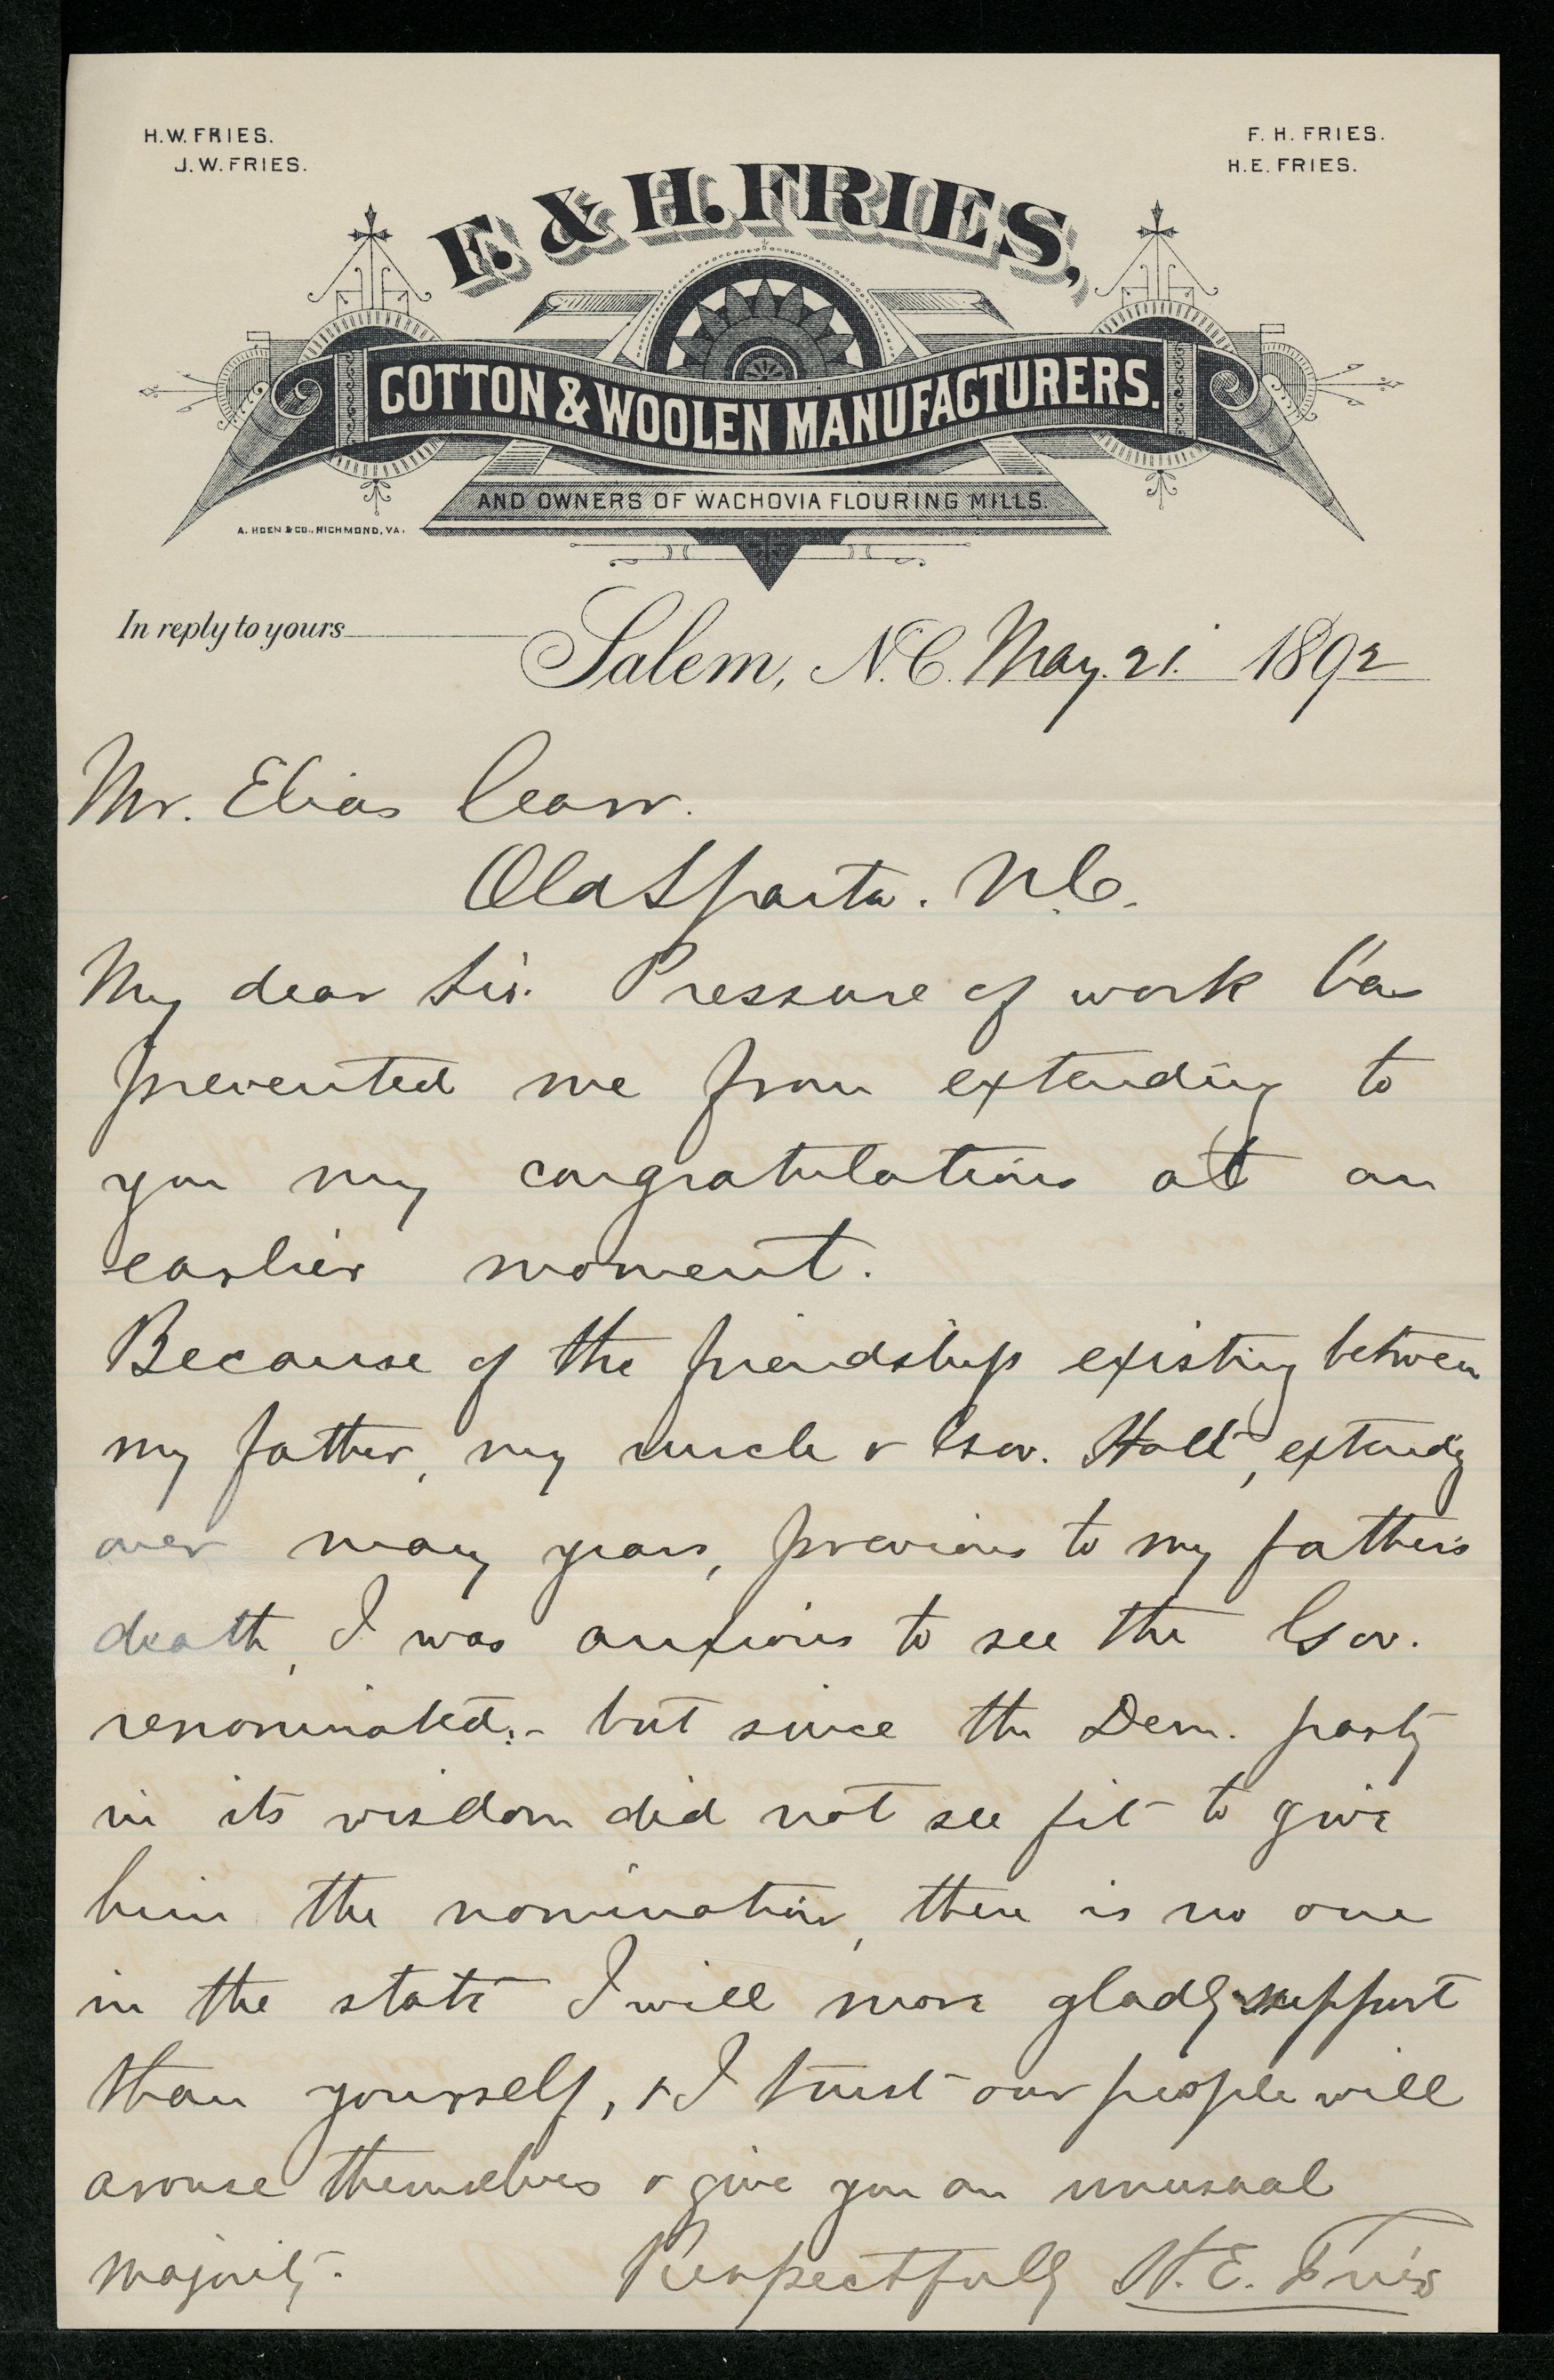 H.W. FRIES.
J.W. FRIES.
F. H. FRIES.
H.E. FRIES.
F. & H. FRIES,
COTTON & WOOLEN MANUFACTURERS.
AND OWNERS OF WACHOVIA FLOURING MILLS.
A. HOEN & CO., RICHMOND, VA.
In reply to yours
Salem, N.C. May. 21. 1892
Mr. Elias Carr.
Old Sparta. N.C.
My dear Sir. Pressure of work has
prevented me from extending to
you my congratulations at an
earlier moment.
Because of the friendship existing between
my father, my uncle & Gov. Holt, extendg
over many years, previous to my fathers
death, I was anxious to see the Gov.
renominated;- but since the Dem. party
in its wisdom did not see fit to give
him the nomination, there is no one
in the state I will more gladly support
than yourself, & I trust our people will
arouse themselves & give you an unusual
majority.
Respectfully H. E. Fries